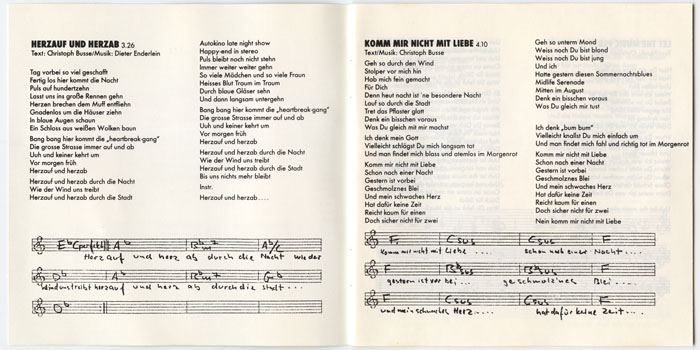 HERZAUF UND HERZAB 3.26
Text: Christoph Busse/Musik: Dieter Enderlein
Tag vorbei so viel geschafft
Fertig los hier kommt die Nacht
Puls auf hundertzehn
Lasst uns ins große Rennen gehn
Herzen brechen dem Muff entfliehn
Gnadenlos um die Häuser ziehn
In blaue Augen schaun
Ein Schloss aus weißen Wolken baun
Bang bang hier kommt die „heartbreak-gang"
Die grosse Strasse immer auf und ab
Uuh und keiner kehrt um
Vor morgen früh
Herzauf und herzab
Herzauf und herzab durch die Nacht
Wie der Wind uns treibt
Herzauf und herzab durch die Stadt
Autokino late night show
Happy-end in stereo
Puls bleibt noch nicht stehn
Immer weiter weiter gehn
So viele Mädchen und so viele Fraun
Heisses Blut Traum im Traum
Durch blaue Gläser sehn
Und dann langsam untergehn
Bang bang hier kommt die „heartbreak-gang"
Die grosse Strasse immer auf und ab
Uuh und keiner kehrt um
Vor morgen früh
Herzauf und herzab
Herzauf und herzab durch die Nacht
Wie der Wind uns treibt
Herzauf und herzab durch die Stadt
Bis uns nichts mehr bleibt
Instr.
Herzauf und herzab....
Ab Ab/C
Herzauf und herz ab durch die Nacht wie der
Db Ab Gb
Wind uns treibt herzauf und herz ab durch die stadt ...
Db
KOMM MIR NICHT MIT LIEBE 4.10
Text/Musik: Christoph Busse
Geh so durch den Wind
Stolper vor mich hin
Hab mich fein gemacht
Für Dich
Denn heut nacht ist 'ne besondere Nacht
Lauf so durch die Stadt
Tret das Pflaster glatt
Denk ein bisschen voraus
Was Du gleich mit mir machst
Ich denk mein Gott
Vielleicht schlägst Du mich langsam tot
Und man findet mich blass und atemlos im Morgenrot
Komm mir nicht mit Liebe
Schon nach einer Nacht
Gestern ist vorbei
Geschmolznes Blei
Und mein schwaches Herz
Hat dafür keine Zeit
Reicht kaum für einen
Doch sicher nicht für zwei
Geh so unterm Mond
Weiss noch Du bist blond
Weiss noch Du bist jung
Und ich
Hatte gestern diesen Sommernachtsblues
Midlife Serenade
Mitten im August
Denk ein bisschen voraus
Was Du gleich mir tust
Ich denk „bum bum"
Vielleicht knallst Du mich einfach um
Und man findet mich fahl und richtig tot im Morgenrot
Komm mir nicht mit Liebe
Schon nach einer Nacht
Gestern ist vorbei
Geschmolznes Blei
Und mein schwaches Herz
Hat dafür keine Zeit
Reicht kaum für einen
Doch sicher nicht für zwei
Nein komm mir nicht mit Liebe
F Csus Csus F
Komm mir nicht mit Liebe .... schon nach einer Nacht ....
F Bbsus Bbsus F
gestern ist vorbei ... geschmolznes Blei ...
F Csus Csus F
und mein schwaches Herz .... hat dafür keine Zeit ....